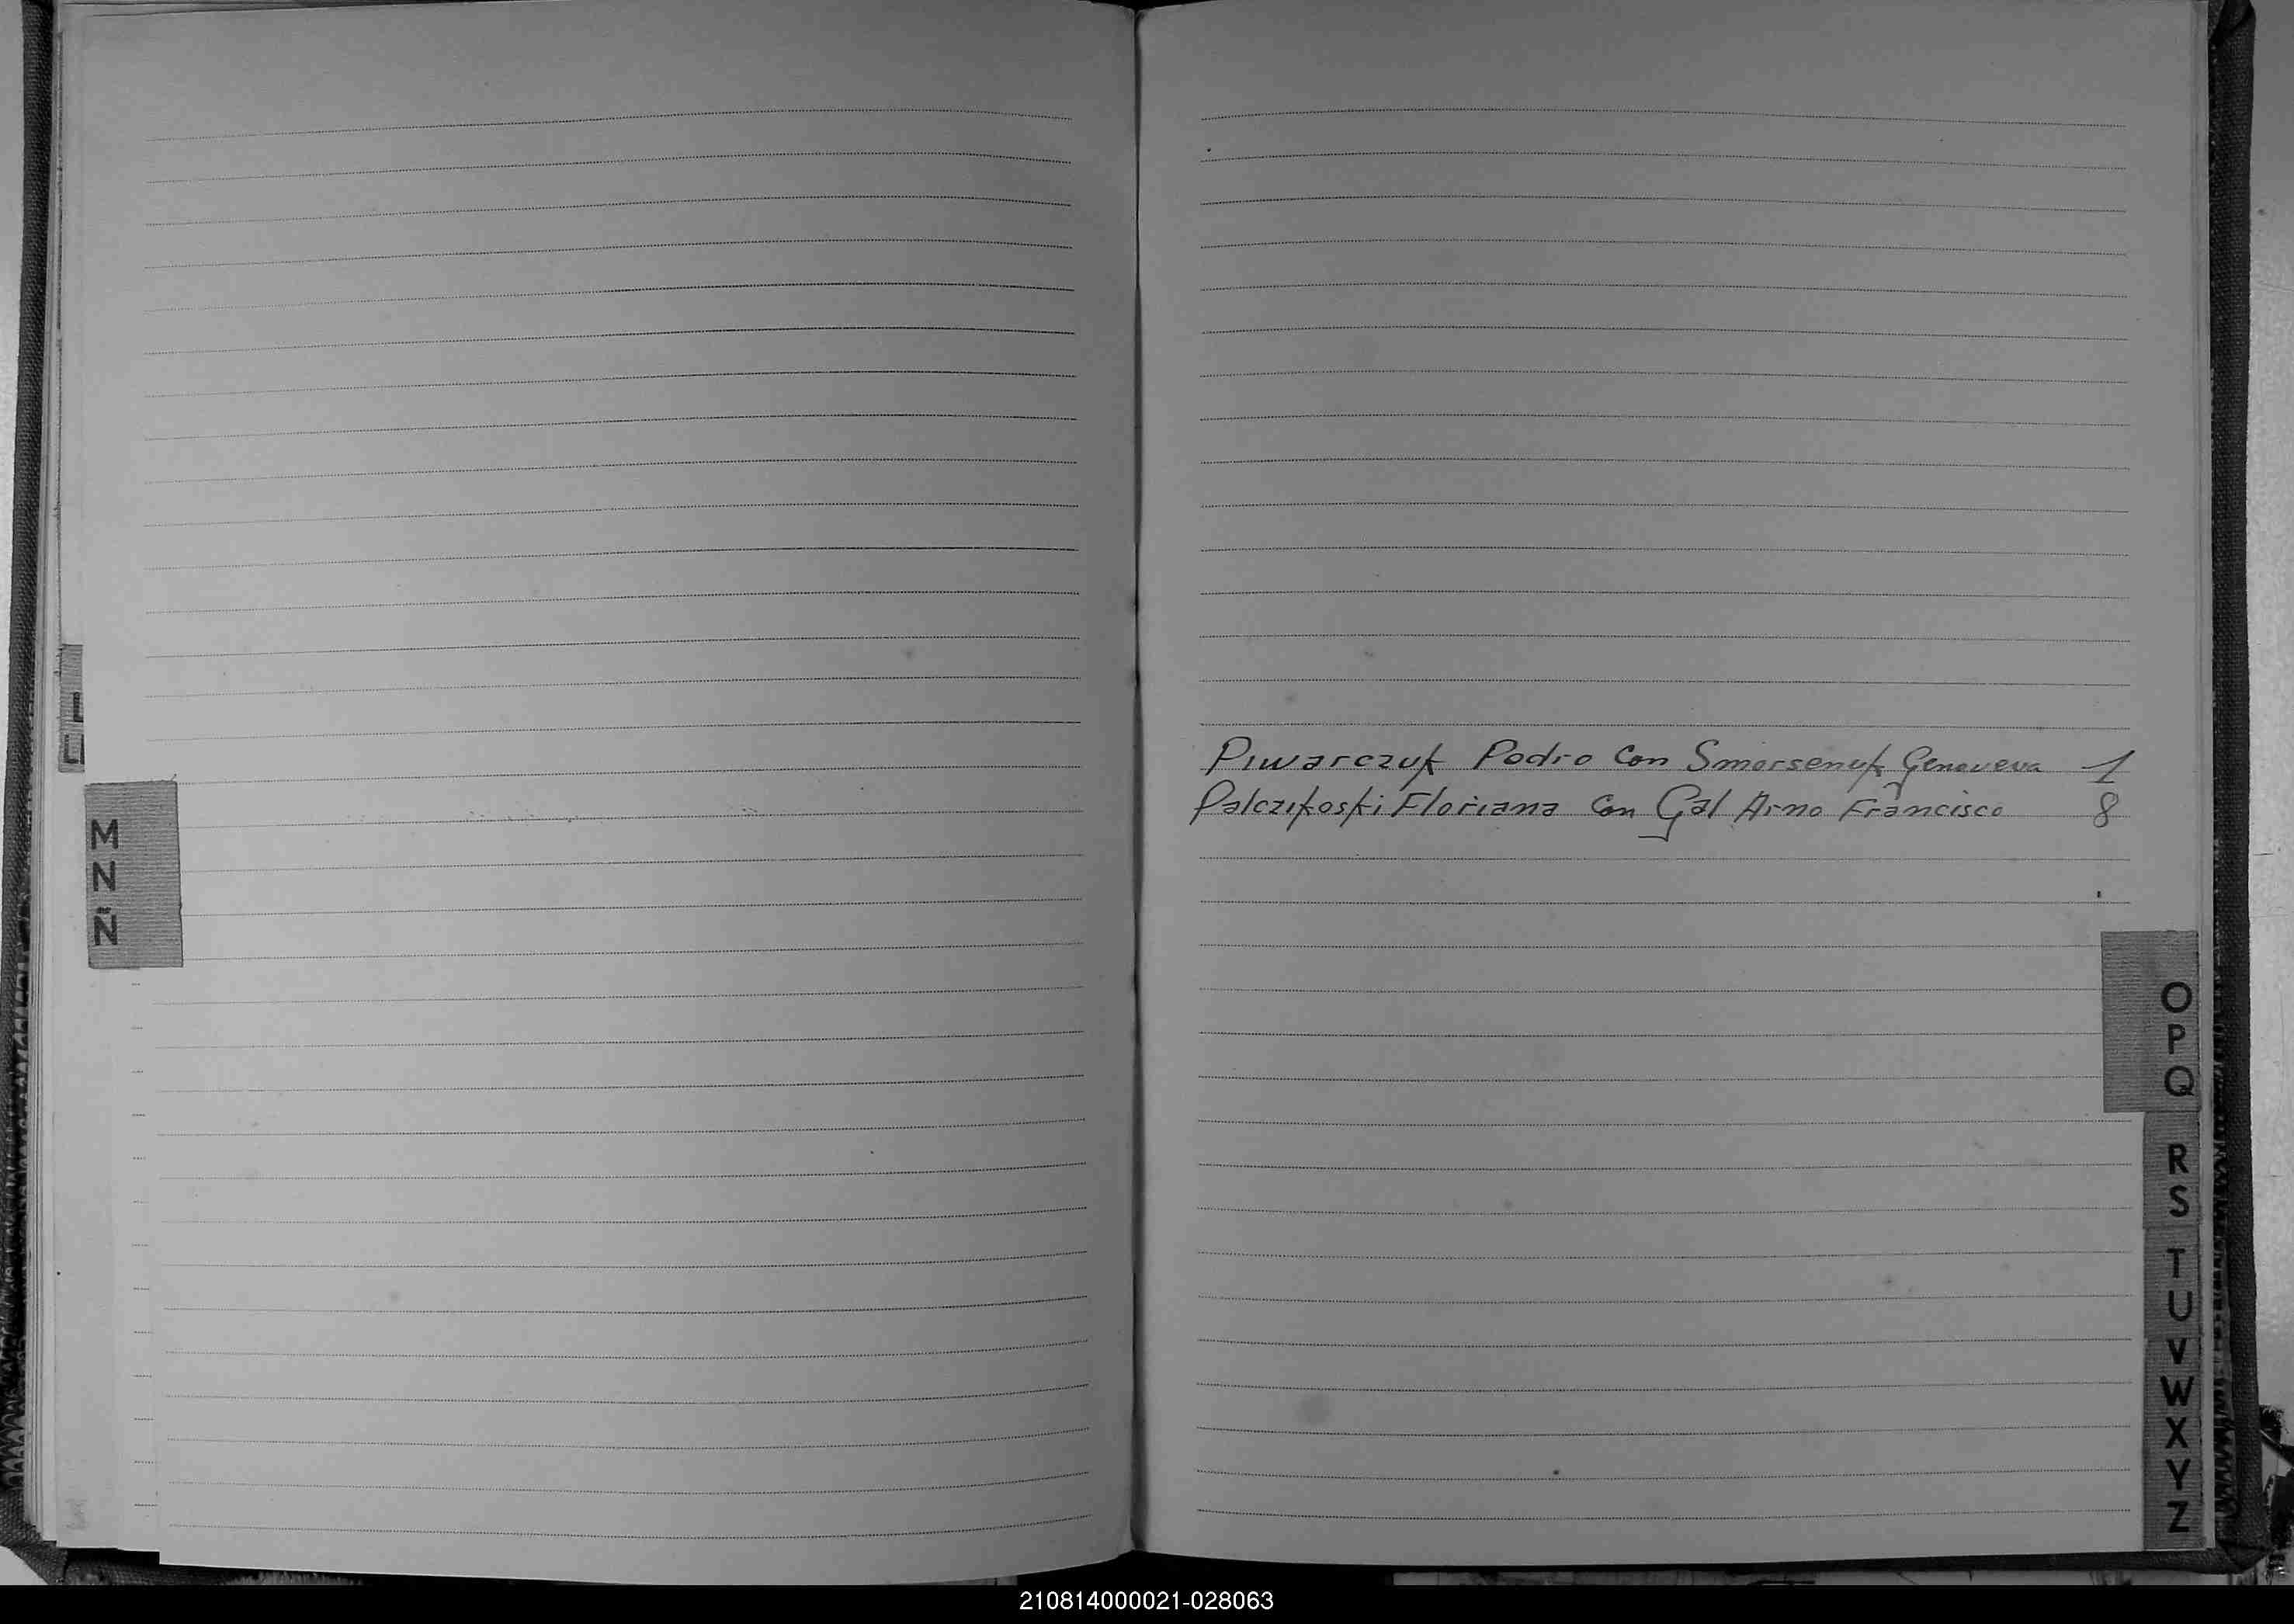 L
LL
M
N
Ñ
Piwarczuk Pedro Con Smorsenuk Genoveva 1
Palczikoski Floriana Con Gal Arno Francisco 8
O
P
Q
R
S
T
U
V
W
X
Y
Z
210814000021-028063